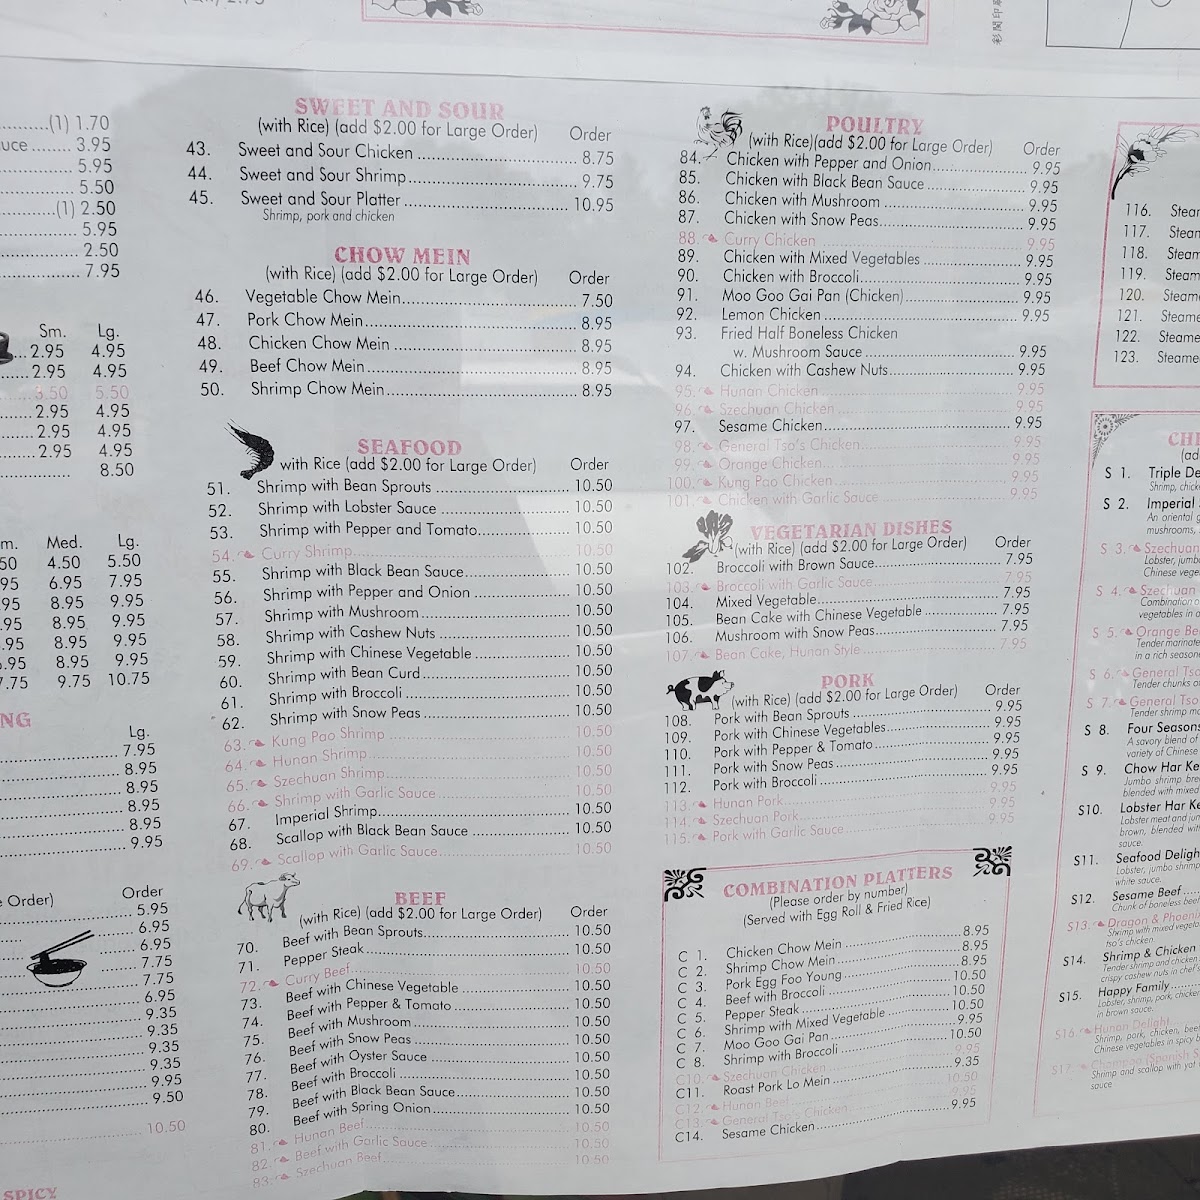 2.75
彩閣印
(1) 1.70
uce ........ 3.95
5.95
5.50
(1) 2.50
5.95
2.50
7.95
Sm. Lg.
2.95 4.95
2.95 4.95
3.50 5.50
2.95 4.95
2.95 4.95
2.95 4.95
8.50
m. Med. Lg.
50 4.50 5.50
95 6.95 7.95
.95 8.95 9.95
.95 8.95 9.95
.95 8.95 9.95
5.95 8.95 9.95
7.75 9.75 10.75
NG
Lg.
7.95
8.95
8.95
8.95
8.95
9.95
Order) Order
5.95
6.95
6.95
7.75
7.75
6.95
9.35
9.35
9.35
9.35
9.95
9.50
10.50
SPICY
SWEET AND SOUR
(with Rice) (add $2.00 for Large Order) Order
43. Sweet and Sour Chicken 8.75
44. Sweet and Sour Shrimp 9.75
45. Sweet and Sour Platter 10.95
Shrimp, pork and chicken
CHOW MEIN
(with Rice) (add $2.00 for Large Order) Order
46. Vegetable Chow Mein 7.50
47. Pork Chow Mein 8.95
48. Chicken Chow Mein 8.95
49. Beef Chow Mein 8.95
50. Shrimp Chow Mein 8.95
SEAFOOD
with Rice (add $2.00 for Large Order) Order
51. Shrimp with Bean Sprouts 10.50
52. Shrimp with Lobster Sauce 10.50
53. Shrimp with Pepper and Tomato 10.50
54. Curry Shrimp 10.50
55. Shrimp with Black Bean Sauce 10.50
56. Shrimp with Pepper and Onion 10.50
57. Shrimp with Mushroom 10.50
58. Shrimp with Cashew Nuts 10.50
59. Shrimp with Chinese Vegetable 10.50
60. Shrimp with Bean Curd 10.50
61. Shrimp with Broccoli 10.50
62. Shrimp with Snow Peas 10.50
63. Kung Pao Shrimp 10.50
64. Hunan Shrimp 10.50
65. Szechuan Shrimp 10.50
66. Shrimp with Garlic Sauce 10.50
67. Imperial Shrimp 10.50
68. Scallop with Black Bean Sauce 10.50
69. Scallop with Garlic Sauce 10.50
BEEF
(with Rice) (add $2.00 for Large Order) Order
70. Beef with Bean Sprouts 10.50
71. Pepper Steak 10.50
72. Curry Beef 10.50
73. Beef with Chinese Vegetable 10.50
74. Beef with Pepper & Tomato 10.50
75. Beef with Mushroom 10.50
76. Beef with Snow Peas 10.50
77. Beef with Oyster Sauce 10.50
78. Beef with Broccoli 10.50
79. Beef with Black Bean Sauce 10.50
80. Beef with Spring Onion 10.50
81. Hunan Beef 10.50
82. Beef with Garlic Sauce 10.50
83. Szechuan Beef 10.50
POULTRY
(with Rice)(add $2.00 for Large Order) Order
84. Chicken with Pepper and Onion 9.95
85. Chicken with Black Bean Sauce 9.95
86. Chicken with Mushroom 9.95
87. Chicken with Snow Peas 9.95
88. Curry Chicken 9.95
89. Chicken with Mixed Vegetables 9.95
90. Chicken with Broccoli 9.95
91. Moo Goo Gai Pan (Chicken) 9.95
92. Lemon Chicken 9.95
93. Fried Half Boneless Chicken
w. Mushroom Sauce 9.95
94. Chicken with Cashew Nuts 9.95
95. Hunan Chicken 9.95
96. Szechuan Chicken 9.95
97. Sesame Chicken 9.95
98. General Tso's Chicken 9.95
99. Orange Chicken 9.95
100. Kung Pao Chicken 9.95
101. Chicken with Garlic Sauce 9.95
VEGETARIAN DISHES
(with Rice) (add $2.00 for Large Order) Order
102. Broccoli with Brown Sauce 7.95
103. Broccoli with Garlic Sauce 7.95
104. Mixed Vegetable 7.95
105. Bean Cake with Chinese Vegetable 7.95
106. Mushroom with Snow Peas 7.95
107. Bean Cake, Hunan Style 7.95
PORK
(with Rice) (add $2.00 for Large Order) Order
108. Pork with Bean Sprouts 9.95
109. Pork with Chinese Vegetables 9.95
110. Pork with Pepper & Tomato 9.95
111. Pork with Snow Peas 9.95
112. Pork with Broccoli 9.95
113. Hunan Pork 9.95
114. Szechuan Pork 9.95
115. Pork with Garlic Sauce 9.95
COMBINATION PLATTERS
(Please order by number)
(Served with Egg Roll & Fried Rice)
C 1. Chicken Chow Mein 8.95
C 2. Shrimp Chow Mein 8.95
C 3. Pork Egg Foo Young 8.95
C 4. Beef with Broccoli 10.50
C 5. Pepper Steak 10.50
C 6. Shrimp with Mixed Vegetable 10.50
C 7. Moo Goo Gai Pan 9.95
C 8. Shrimp with Broccoli 10.50
C10. Szechuan Chicken 9.95
C11. Roast Pork Lo Mein 9.35
C12. Hunan Beef 10.50
C13. General Tso's Chicken 9.95
C14. Sesame Chicken 9.95
116. Stear
117. Stean
118. Steam
119. Steam
120. Steame
121. Steame
122. Steame
123. Steame
CHI
(ad
S 1. Triple De
Shrimp, chick
S 2. Imperial
An oriental
mushrooms,
S 3. Szechuan
Lobster, jumbo
Chinese vege
S 4. Szechuan
Combination o
vegetables in a
S 5. Orange Be
Tender marinate
in a rich season
S 6. General Tso
Tender chunks o
S 7. General Tso'
Tender shrimp ma
S 8. Four Seasons
A savory blend of
variety of Chinese
S 9. Chow Har Ke
Jumbo shrimp bre
blended with mixed
S10. Lobster Har Ke
Lobster meat and jum
brown, blended with
sauce.
S11. Seafood Deligh
Lobster, jumbo shrimp
white sauce.
S12. Sesame Beef
Chunk of boneless beef
S13. Dragon & Phoeni
Shrimp with mixed vegetab
tso's chicken
S14. Shrimp & Chicken
Tender shrimp and chicken
crispy cashew nuts in chef's
S15. Happy Family
Lobster, shrimp, pork, chicken
in brown sauce.
S16. Hunan Delight
Shrimp, pork, chicken, beef
Chinese vegetables in spicy b
S17. (Spanish S
Shrimp and scallop with
sauce